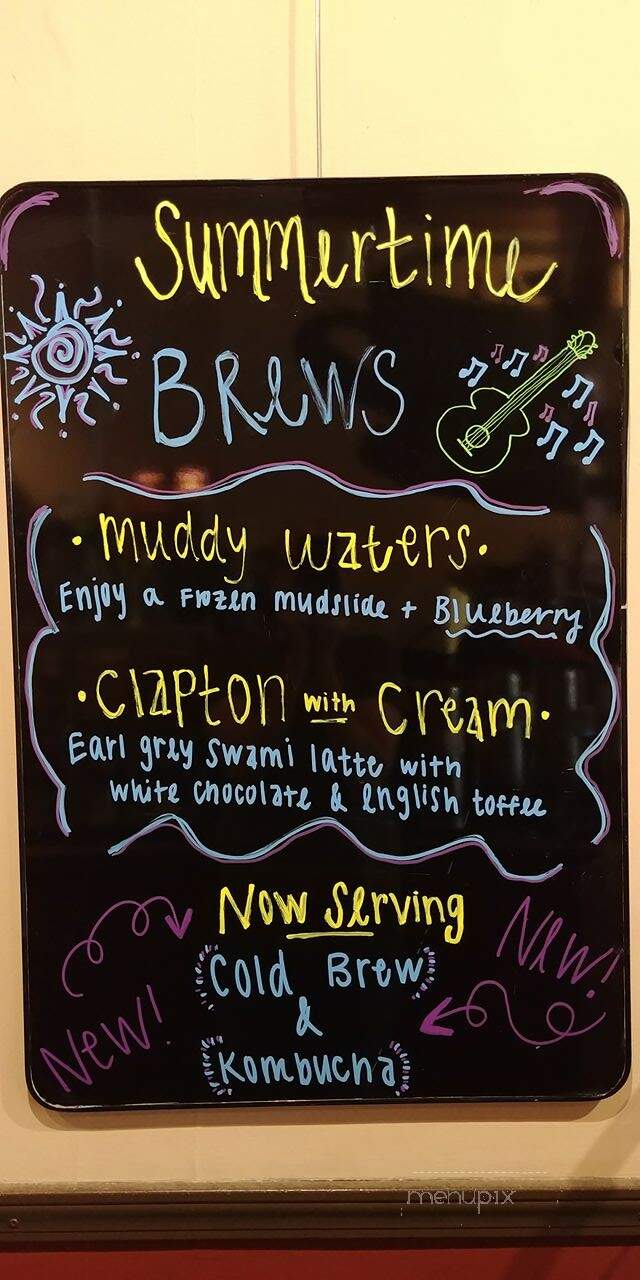 Summertime
BREWS
• muddy waters •
Enjoy a frozen mudslide + Blueberry
• Clapton with Cream •
Earl grey swami latte with
white chocolate & english toffee
Now Serving
Cold Brew
&
Kombucha
New!
New!
menupix